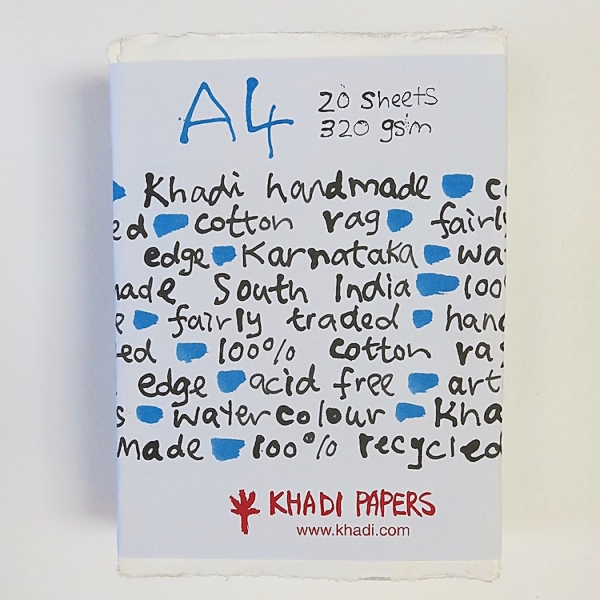 A4
20 sheets
320 gsm
Khadi handmade
cotton rag fairly
edge Karnataka
South India 100
fairly traded
100% cotton
edge acid free art
watercolour
made 100% recycled
KHADI PAPERS
www.khadi.com